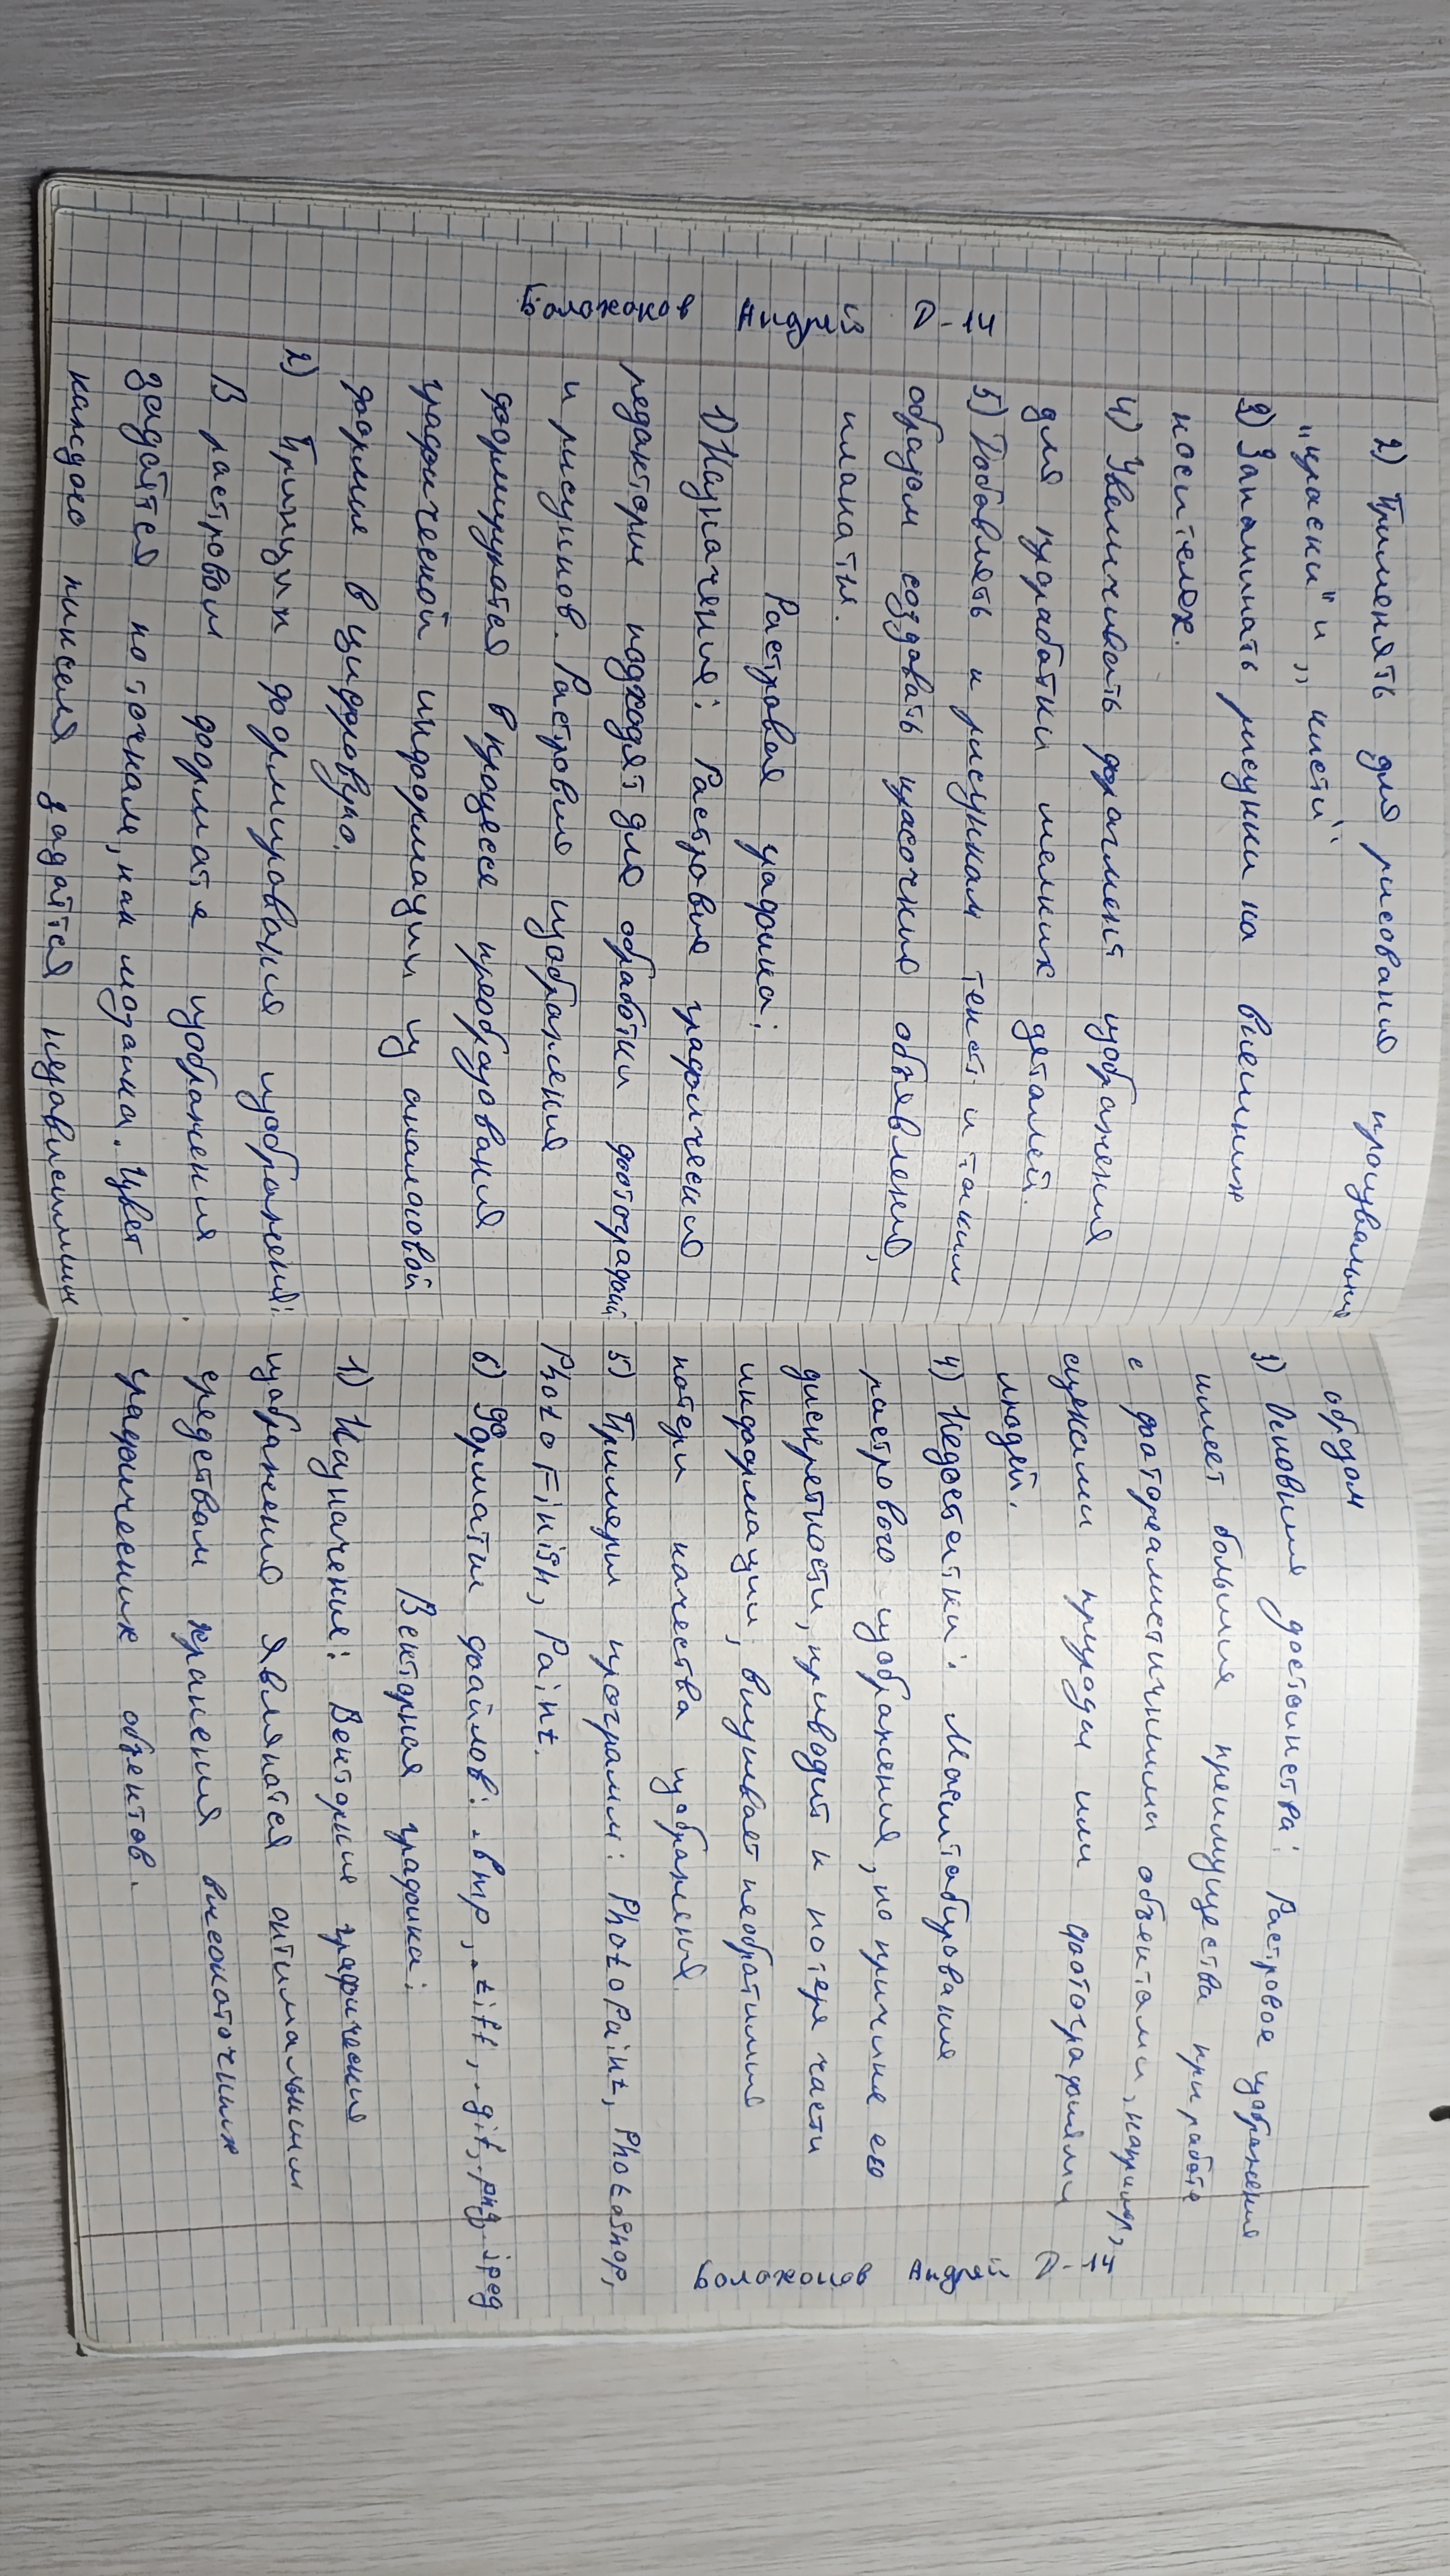 Болажоков Андрей D-14
2) Применять для рисования произвольные
"краски" и „кисти".
3) Запоминать рисунки на внешних
носителях.
4) Увеличивать фрагмент изображения
для проработки мелких деталей.
5) Добавлять к рисункам текст и таким
образом создавать красочные объявления,
плакаты.
Растровая графика:
1) Назначения: Растровые графические
редакторы подходят для обработки фотографий
и рисунков. Растровые изображения
формируются в процессе преобразования
графической информации из аналоговой
формы в цифровую.
2) Принцып формирования изображения:
В растровом формате изображения
задаётся по точкам, как мозаика. Цвет
каждого пикселя задаётся независимым
образом
3) Основные достоинства: Растровое изображения
имеет большия преимущества при работе
с фотореалистичными объектами, например,
сценами природы или фотографиями
людей.
4) Недостатки: Масштабирования
растрового изображения, по причине его
дискретности, приводит к потере части
информации, вызывает необратимые
потери качества изображения.
5) Примеры программ: PhotoPaint, PhotoShop,
PhotoFinish, Paint.
6) Форматы файлов: .bmp, .tiff, .gif, .png .jpeg
Векторная графика:
1) Назначение: Векторные графические
изображения являются оптимальным
средством хранения высокоточных
графических объектов.
Болажоков Андрей D-14